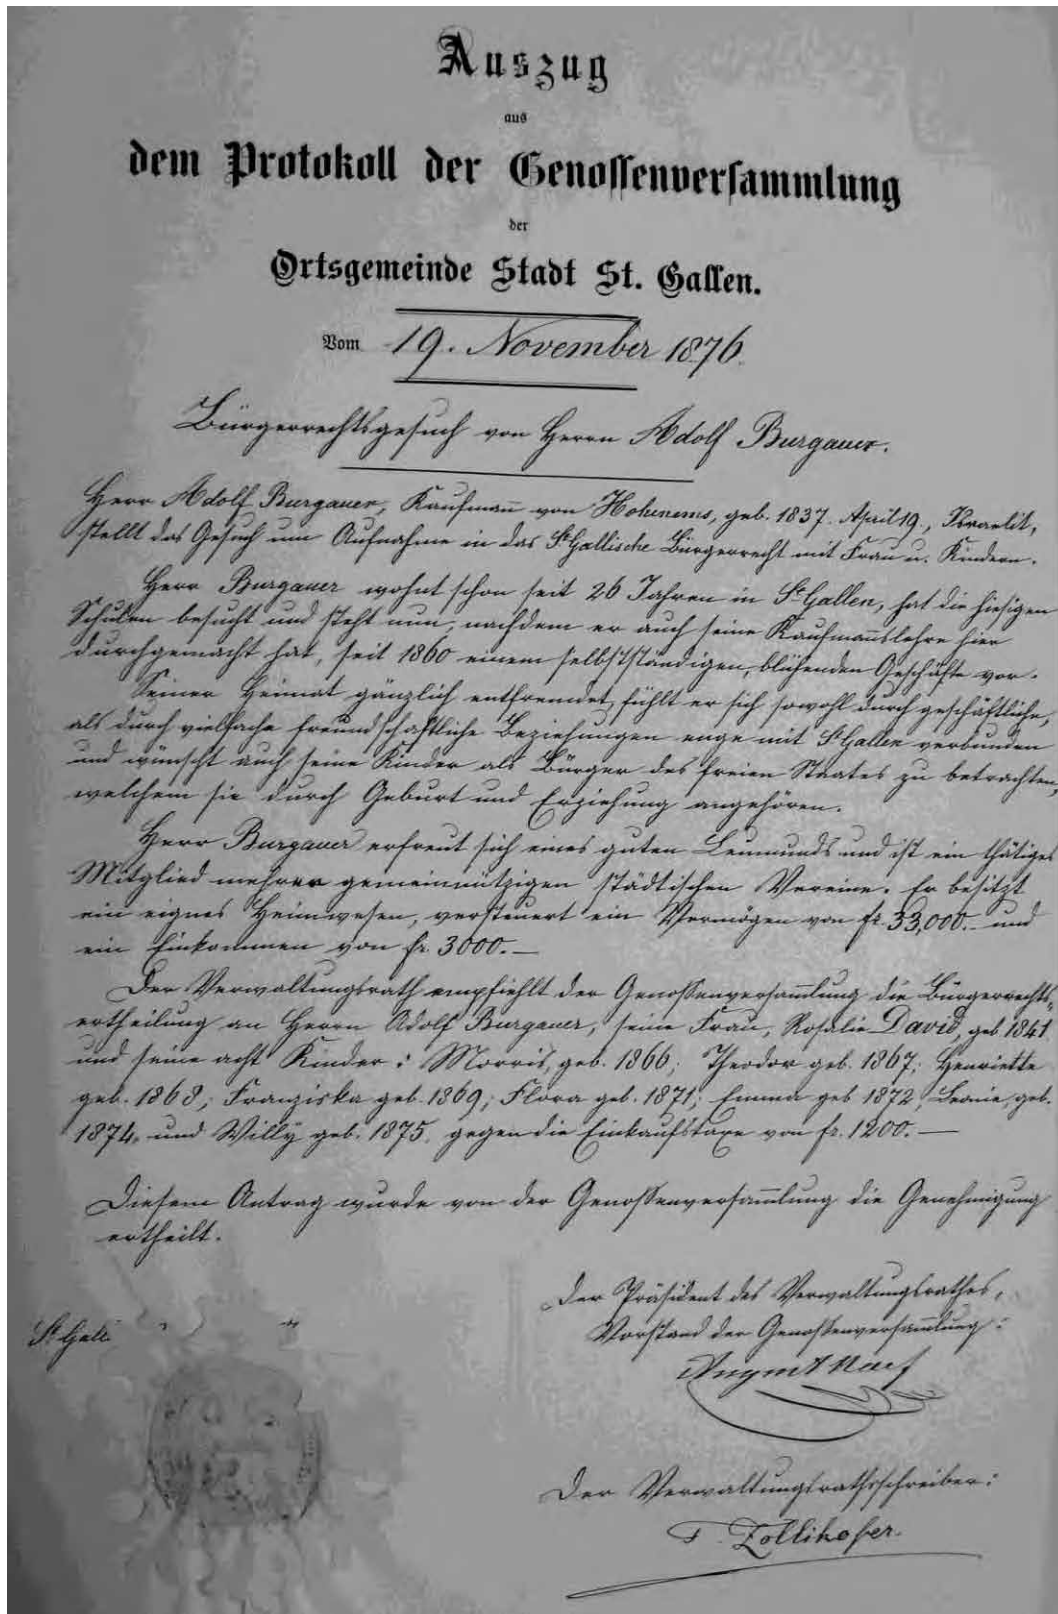 Auszug
aus
dem Protokoll der Genossenversammlung
der
Ortsgemeinde Stadt St. Gallen.
Vom 19. November 1876.
Bürgerrechtsgesuch von Herrn Adolf Burgauer.
Herr Adolf Burgauer, Kaufmann von Hohenems, geb. 1837. April 19., Israelit,
stellt das Gesuch um Aufnahme in das St. Gallische Bürgerrecht mit Frau u. Kindern.
Herr Burgauer wohnt schon seit 26 Jahren in St. Gallen, hat die hiesigen
Schulen besucht und steht nun, nachdem er auch seine Kaufmannslehre hier
durchgemacht hat, seit 1860 einem selbstständigen, blühenden Geschäfte vor.
Seiner Heimat gänzlich entfremdet, fühlt er sich sowohl durch geschäftliche,
als durch vielfache freundschaftliche Beziehungen enge mit St. Gallen verbunden
und wünscht auch seine Kinder als Bürger des freien Staates zu betrachten,
welchem sie durch Geburt und Erziehung angehören.
Herr Burgauer erfreut sich eines guten Leumunds und ist ein thätiges
Mitglied mehrer gemeinnützigen städtischen Vereine. Er besitzt
ein eignes Heimwesen, versteuert ein Vermögen von fr. 33,000.– und
ein Einkommen von fr. 3000.—
Der Verwaltungsrath empfiehlt der Genossenversammlung die Bürgerrechts-
ertheilung an Herrn Adolf Burgauer, seine Frau, Rosalie David, geb. 1841
und seine acht Kinder: Morris, geb. 1866; Theodor geb. 1867; Henriette
geb. 1868; Franziska geb. 1869; Flora geb. 1871; Emma geb 1872; Leonie, geb.
1874, und Willy geb. 1875. gegen die Einkaufstaxe von fr. 1200.—
Diesem Antrag wurde von der Genossenversammlung die Genehmigung
ertheilt.
Der Präsident des Verwaltungsrathes,
Vorstand der Genossenversammlung:
St. Gall
August Naef
Der Verwaltungsrathsschreiber:
Zollikofer.